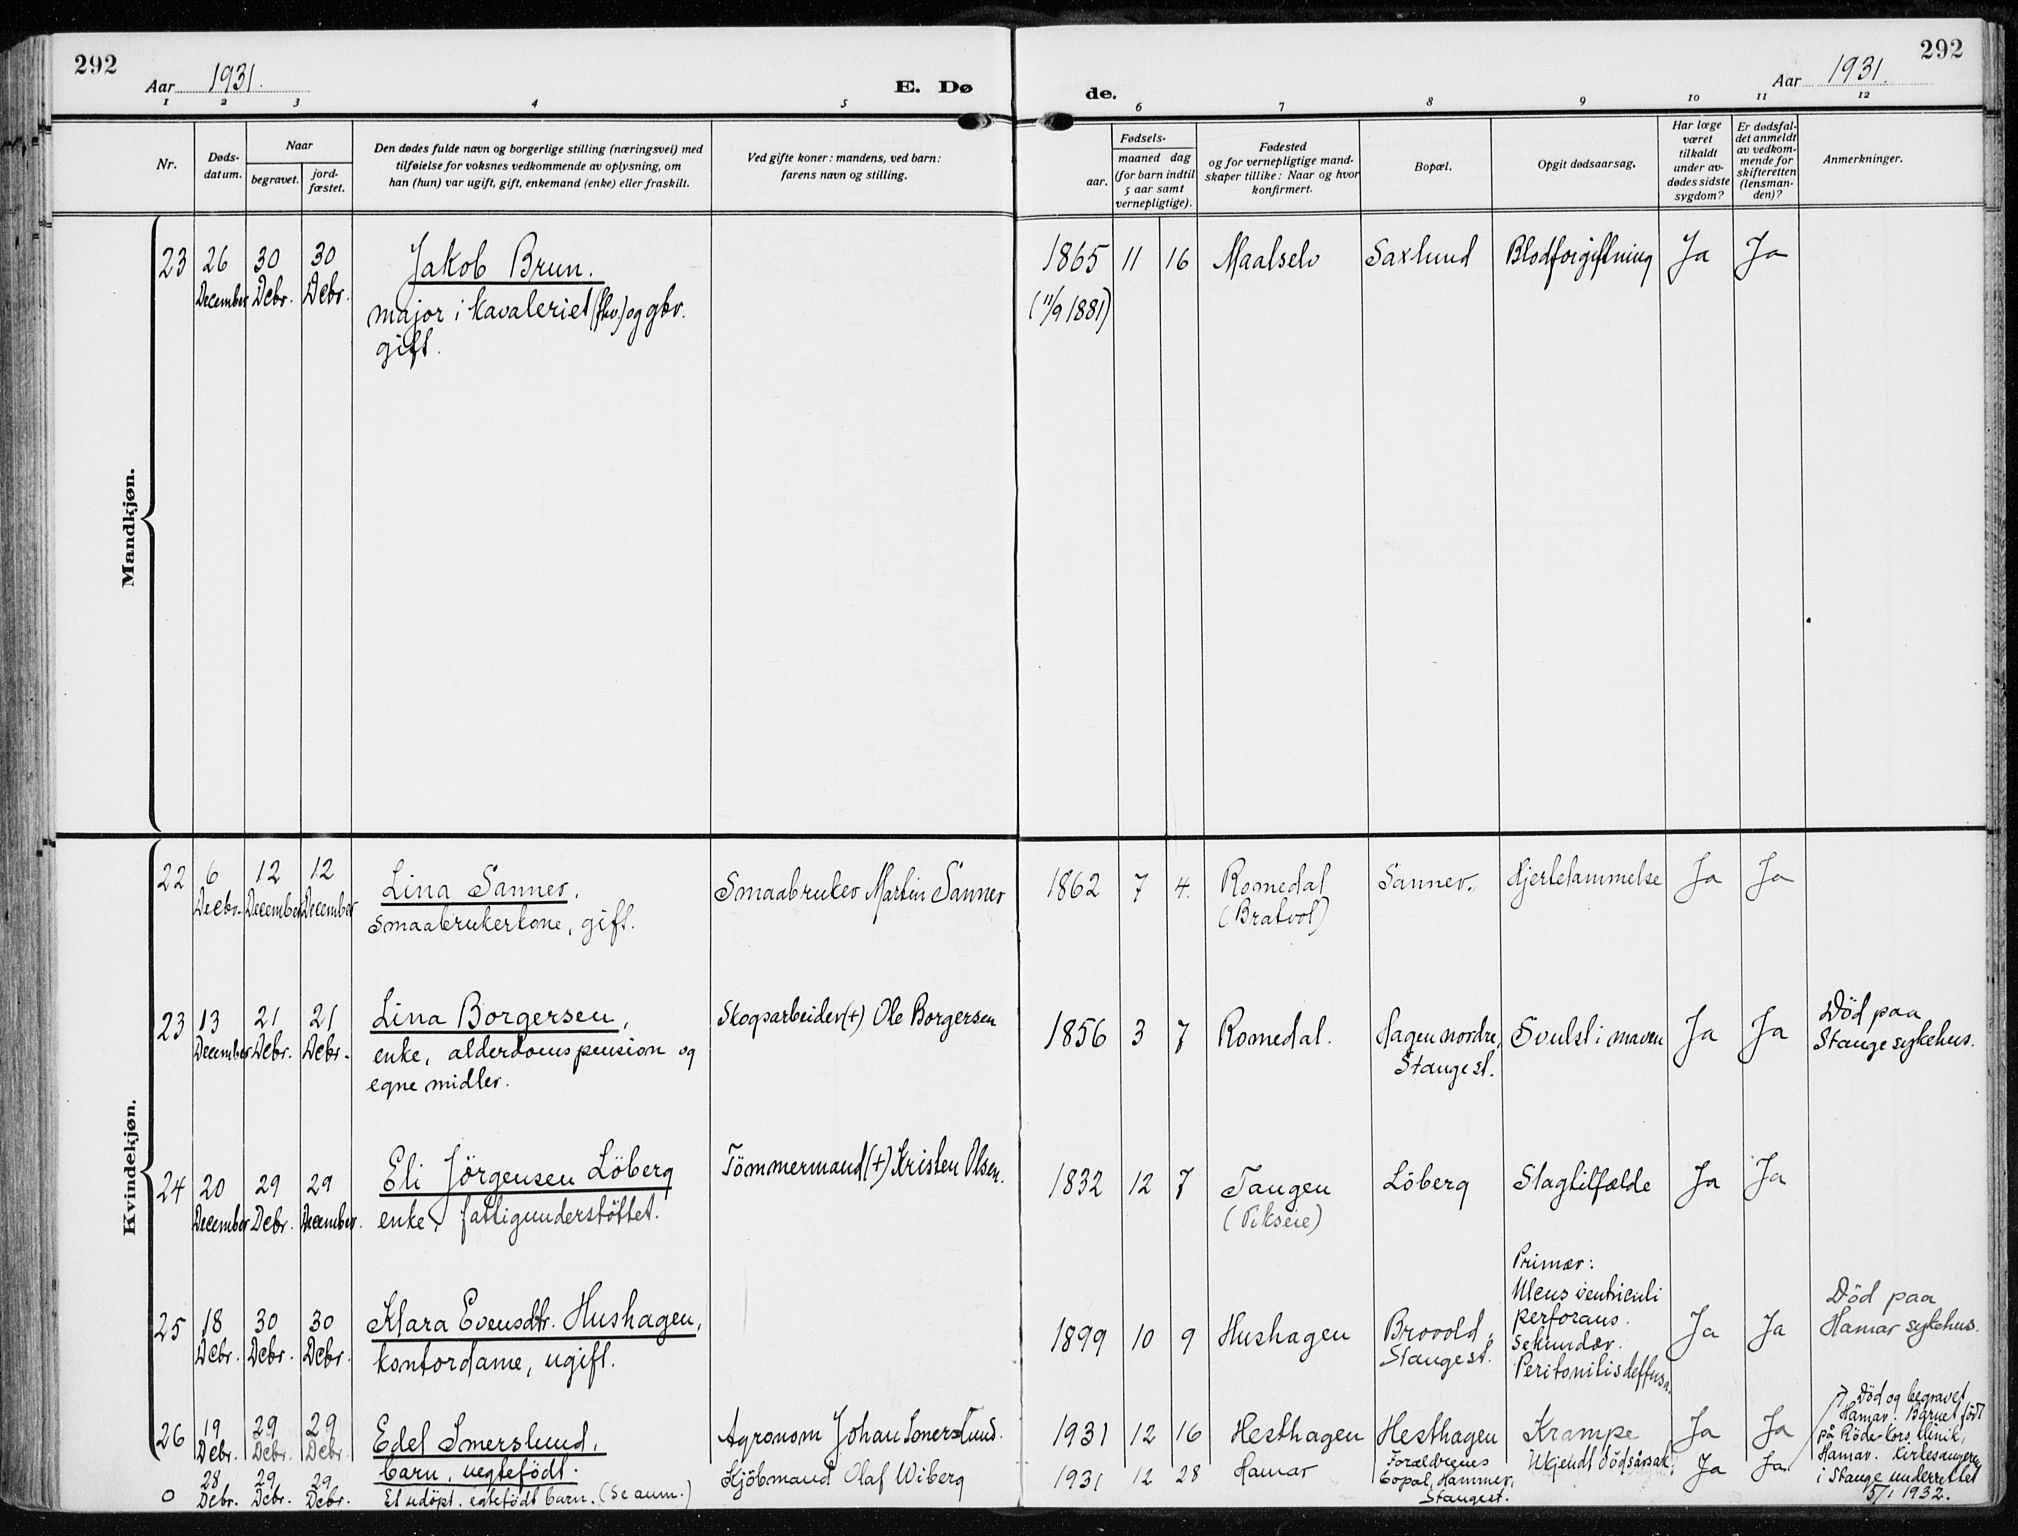 292
Aar 1931.
E. Dø
de.
Aar 1931.
292
1 2 3 4 5 6 7 8 9 10 11 12
Nr.
Døds-
datum.
Naar
begravet.
jord-
fæstet.
Den dødes fulde navn og borgerlige stilling (næringsvei) med
tilføielse for voksnes vedkommende av oplysning, om
han (hun) var ugift, gift, enkemand (enke) eller fraskilt.
Ved gifte koner: mandens, ved barn:
farens navn og stilling.
Fødsels-
aar.
maaned dag
(for barn indtil
5 aar samt
vernepligtige).
Fødested
og for vernepligtige mand-
skaper tillike: Naar og hvor
konfirmert.
Bopæl.
Opgit dødsaarsag.
Har læge
været
tilkaldt
under av-
dødes sidste
sygdom?
Er dødsfal-
det anmeldt
av vedkom-
mende for
skifteretten
(lensman-
den)?
Anmerkninger.
Mandkjøn.
23 26 30 30 Jakob Brun. 1865 11 16 Maalselv Saxlund Blodforgiftning Ja Ja
December Debr. Debr. major i kavaleriet (fhv.) og gbr. (11/9 1881)
gift.
Kvindekjøn.
22 6 12 12 Lina Sanner. Smaabruker Martin Sanner 1862 7 4. Romedal Sanner. Hjertelammelse Ja Ja
Decbr. December December smaabrukerkone, gift. (Bratvol)
23 13 21 21 Lina Borgersen, Skogsarbeider (+) Ole Borgersen 1856 3 7 Romedal. Hagen nordre, Svulst i maven Ja Ja Död paa
December Debr. Debr. enke, alderdomspension og Stange st. Stange sykehus.
egne midler.
24 20 29 29 Eli Jörgensen Löberg Tömmermand (+) Kristen Olsen. 1832 12 7 Tangen Löberg Slagtilfælde Ja Ja
December Debr. December. enke, fattigunderstöttet. (Vikseie)
25 18 30 30 Klara Evensdtr. Hushagen, 1899 10 9 Hushagen Brovold, Primær: Ja Ja Död paa
Debr. Debr. Debr. kontordame, ugift. Stange st. Ulcus ventriculi Hamar sykehus.
perforans.
Sekundær.
Peritonitis deffusa.
26 19 29 29 Edel Imerslund, Agronom Johan Imerslund. 1931 12 16 Hesthagen Hesthagen Krampe Ja Ja
Debr. Debr. Debr. barn, uegtefödt.
0 28 29 29 Et udöpt. egtefödt barn. (Se anm.) Kjöbmand Olaf Wiberg 1931 12 28 Hamar Forældrenes Ukjendt dödsårsak. Ja Ja
Debr. Debr. Debr. bopal, Hammer,
Stangest.
Död og begravet
Hamar. Barnet födt
på Röde-Kors klinik,
Hamar.
i Stange underrettet
5/1 1932.